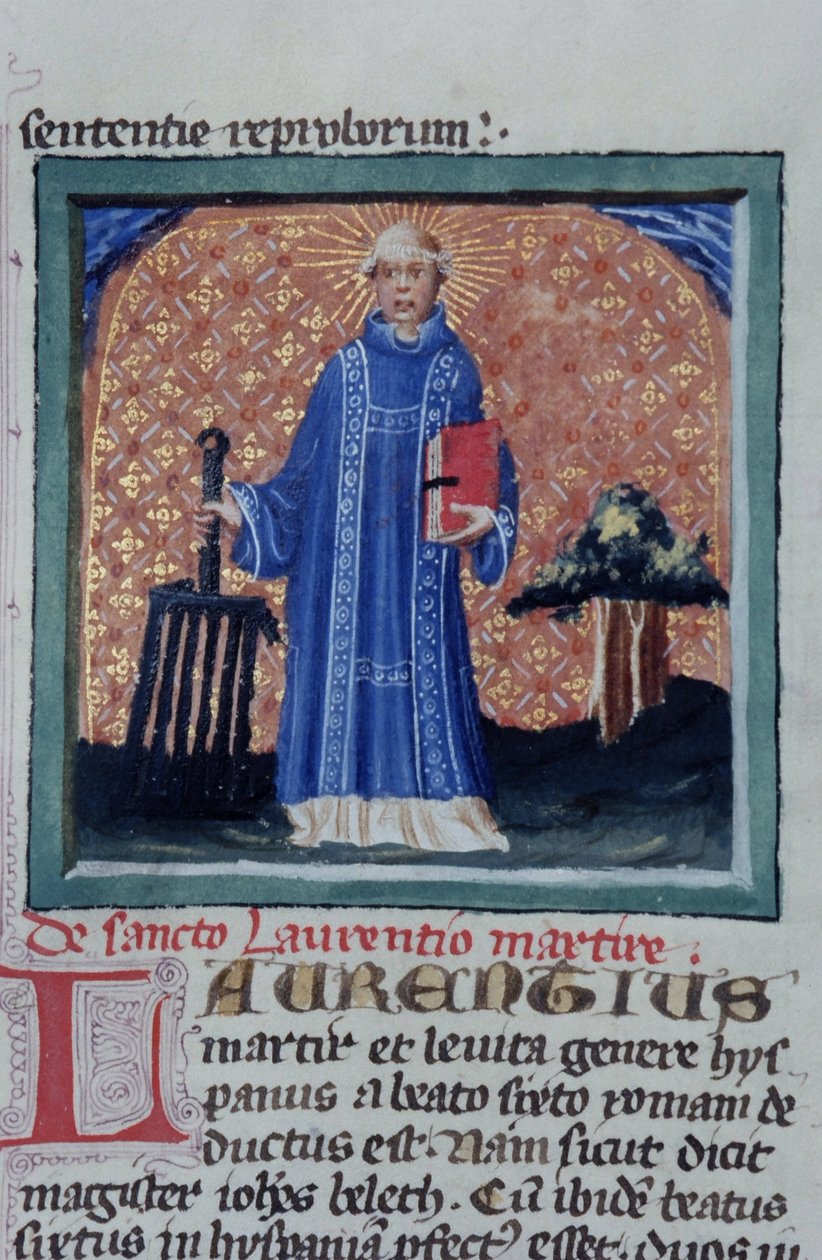 sententie reproborum:.
De sancto Laurentio martire:
LAURENTIUS
martir et levita genere hys-
panus a beato sixto romam de
ductus est. Nam sicut dicit
magister ioh̅es beleth. Cū ibidē beatus
sixtus in hyspaniā pfectꝰ esset duos iu